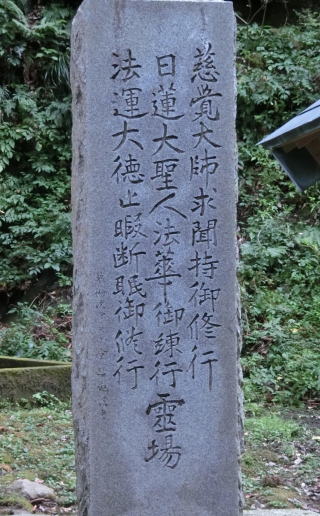 慈覚大師求聞持御修行
日蓮大聖人法華御練行靈場
法運大徳止暇断眠御修行